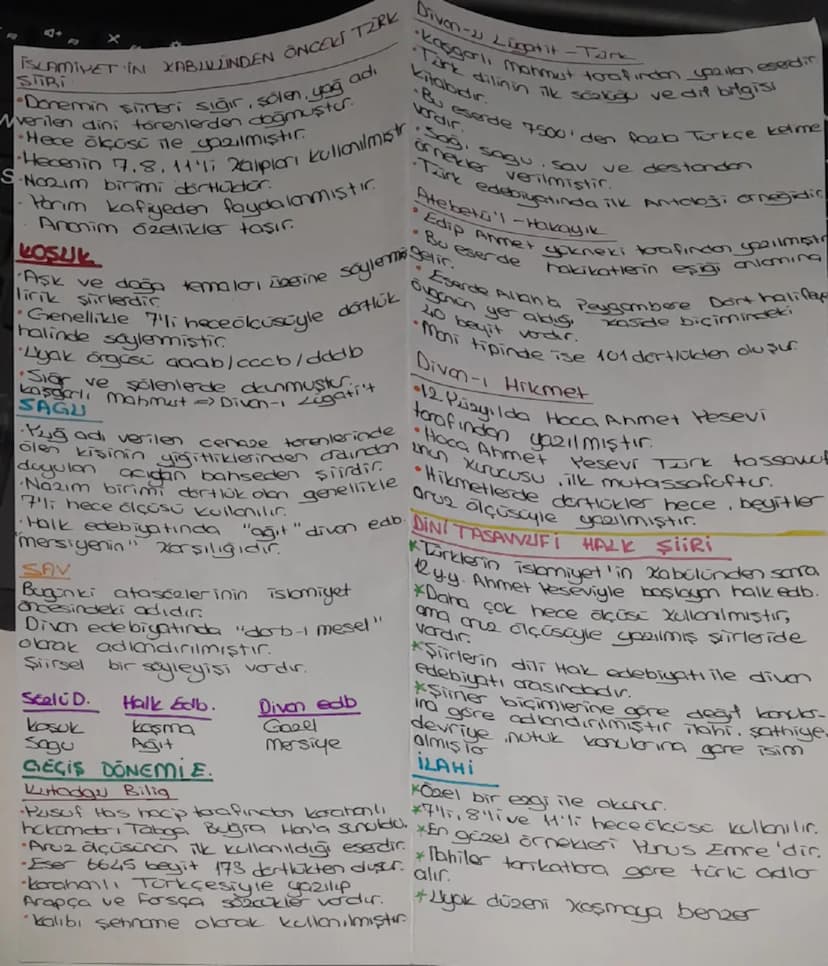 İSLAMİYET'İN KABULÜNDEN ÖNCEKİ TÜRK
ŞİİRİ
• Dönemin şiirleri sığır, şölen, yuğ adı
verilen dini törenlerden doğmuştur.
• Hece ölçüsü ile yazılmıştır.
• Hecenin 7, 8, 11'li kalıpları kullanılmıştır
• Nazım birimi dörtlüktür.
• Yarım kafiyeden faydalanmıştır.
Anonim özellikler taşır.
KOŞUK
• Aşk ve doğa temaları üzerine söylenmiş
lirik şiirlerdir.
• Genellikle 7'li hece ölçüsüyle dörtlük
halinde söylemiştir.
• Uyak örgüsü aaab/cccb/dddb
• Sığır ve şölenlerde
kaşgarlı Mahmut => Divan-ı Lügati't
SAGU
• Yuğ adı verilen cenaze törenlerinde
ölen kişinin yiğitliklerinden ardından
duyulan acıdan bahseden şiirdir.
• Nazım birimi dörtlük olan genellikle
7'li hece ölçüsü kullanılır.
• Halk edebiyatında "ağıt" divan edb.
"mersiyenin" karşılığıdır.
SAV
Bugünki atasözlerinin islamiyet
öncesindeki adıdır.
Divan edebiyatında "darb-ı mesel"
olarak adlandırılmıştır.
Şiirsel bir söyleyişi vardır.
Sözlü D. Halk Edb. Divan edb
koşuk koşma Gazel
Sagu Ağıt mersiye
GEÇİŞ DÖNEMİ E.
Kutadgu Bilig
• Yusuf Has hacip tarafından karahanlı
hükümdarı Tabga Buğra Han'a sunuldu.
• Aruz ölçüsünün ilk kullanıldığı eserdir.
• Eser 6645 beyit 173 dörtlükten oluşur.
• karahanlı Türkçesiyle yazılıp
Arapça ve Farsça sözcükler vardır.
• kalıbı şehname olarak kullanılmıştır
Divan-ü Lügatit-Türk
• Kaşgarlı Mahmut tarafından yazılan eserdir
• Türk dilinin ilk sözlüğü ve dil bilgisi
kitabıdır.
• Bu eserde 7500'den fazla Türkçe kelime
vardır.
• Sağı, sagu, sav ve destandan
örnekler verilmiştir.
• Türk edebiyatında ilk Antoloji örneğidir
Atebetü'l-Hakayık
• Edip Ahmet yükneki tarafından yazılmıştır
• Bu eserde hakikatlerin eşiği anlamına
gelir.
• Eserde Allah'a Peygambere Dört halifeye
övgünün yer aldığı, kaside biçimindeki
40 beyit vardır.
• Mani tipinde ise 101 dörtlükten oluşur
Divan-ı Hikmet
• 12. Yüzyılda Hoca Ahmet Yesevi
tarafından yazılmıştır.
• Hoca Ahmet Yesevi Türk tassavuf
unun kurucusu, ilk mutassafuftur.
• Hikmetlerde dörtlükler hece, beyitler
aruz ölçüsüyle yazılmıştır.
DİNİ TASAVVUFİ HALK ŞİİRİ
* Türklerin islamiyet'in kabulünden sonra
12 yy. Ahmet Yeseviyle başlayan halk edb.
* Daha çok hece ölçüsü kullanılmıştır,
ama aruz ölçüsüyle yazılmış şiirleride
vardır.
* Şiirlerin dili Hak edebiyatı ile divan
edebiyatı arasındadır.
* Şiirler biçimlerine göre değil konular-
ına göre adlandırılmıştır ilahi, şathiye,
devriye, nutuk konularına göre isim
almıştır
İLAHİ
* Özel bir ezgi ile okunur.
* 7'li, 8'li ve 11'li hece ölçüsü kullanılır.
* En güzel örnekleri Yunus Emre'dir.
* İlahiler tarikatlara göre türlü adlar
alır.
* Uyak düzeni koşmaya benzer